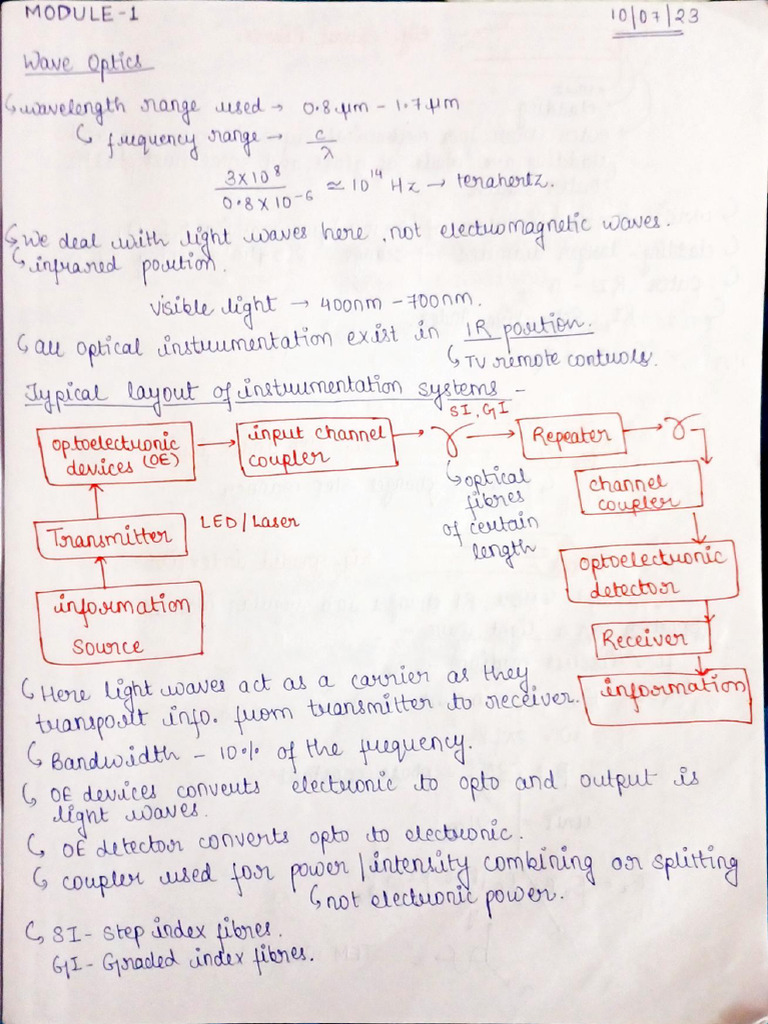 MODULE-1
10/07/23
Wave Optics
wavelength range used → 0.8 μm - 1.7 μm
frequency range → c/λ
3×10^8 / 0.8×10^-6 ≃ 10^14 Hz → terahertz.
We deal with light waves here, not electromagnetic waves.
infrared position.
visible light → 400nm - 700nm.
All optical instrumentation exist in IR position.
TV remote controls.
Typical layout of instrumentation systems -
optoelectronic
devices (OE)
input channel
coupler
SI, GI
Repeater
optical
fibres
of certain
length
channel
coupler
Transmitter
LED/Laser
optoelectronic
detector
information
source
Receiver
information
Here light waves act as a carrier as they
transport info. from transmitter to receiver.
Bandwidth - 10% of the frequency.
OE devices converts electronic to opto and output is
light waves.
OE detector converts opto to electronic.
coupler used for power/intensity combining or splitting
not electronic power.
SI - Step index fibres.
GI - Graded index fibres.